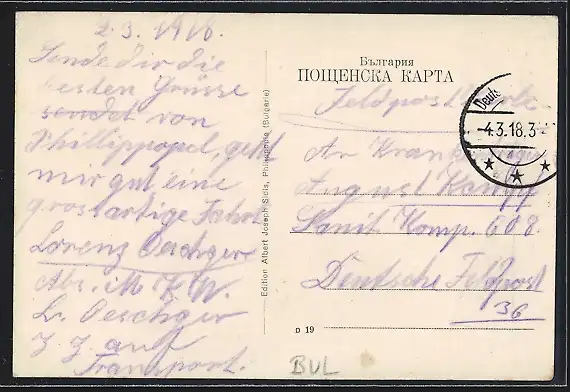 2.3.1918.
Sende dir die
besten Grüsse
sendet von
Phillippopel, geht
mir gut eine
grossartige Fahrt
Lorenz Oeschger
Abs. M. K. W.
L. Oeschger
z. Z. auf
Transport.
Edition Albert Joseph Sidis, Philippople (Bulgarie)
България
ПОЩЕНСКА КАРТА
Feldpostkarte
Deuts
-4.3.18.3
An
August
Sanit Komp. 608.
Deutsche Feldpost
36
D 19
BUL